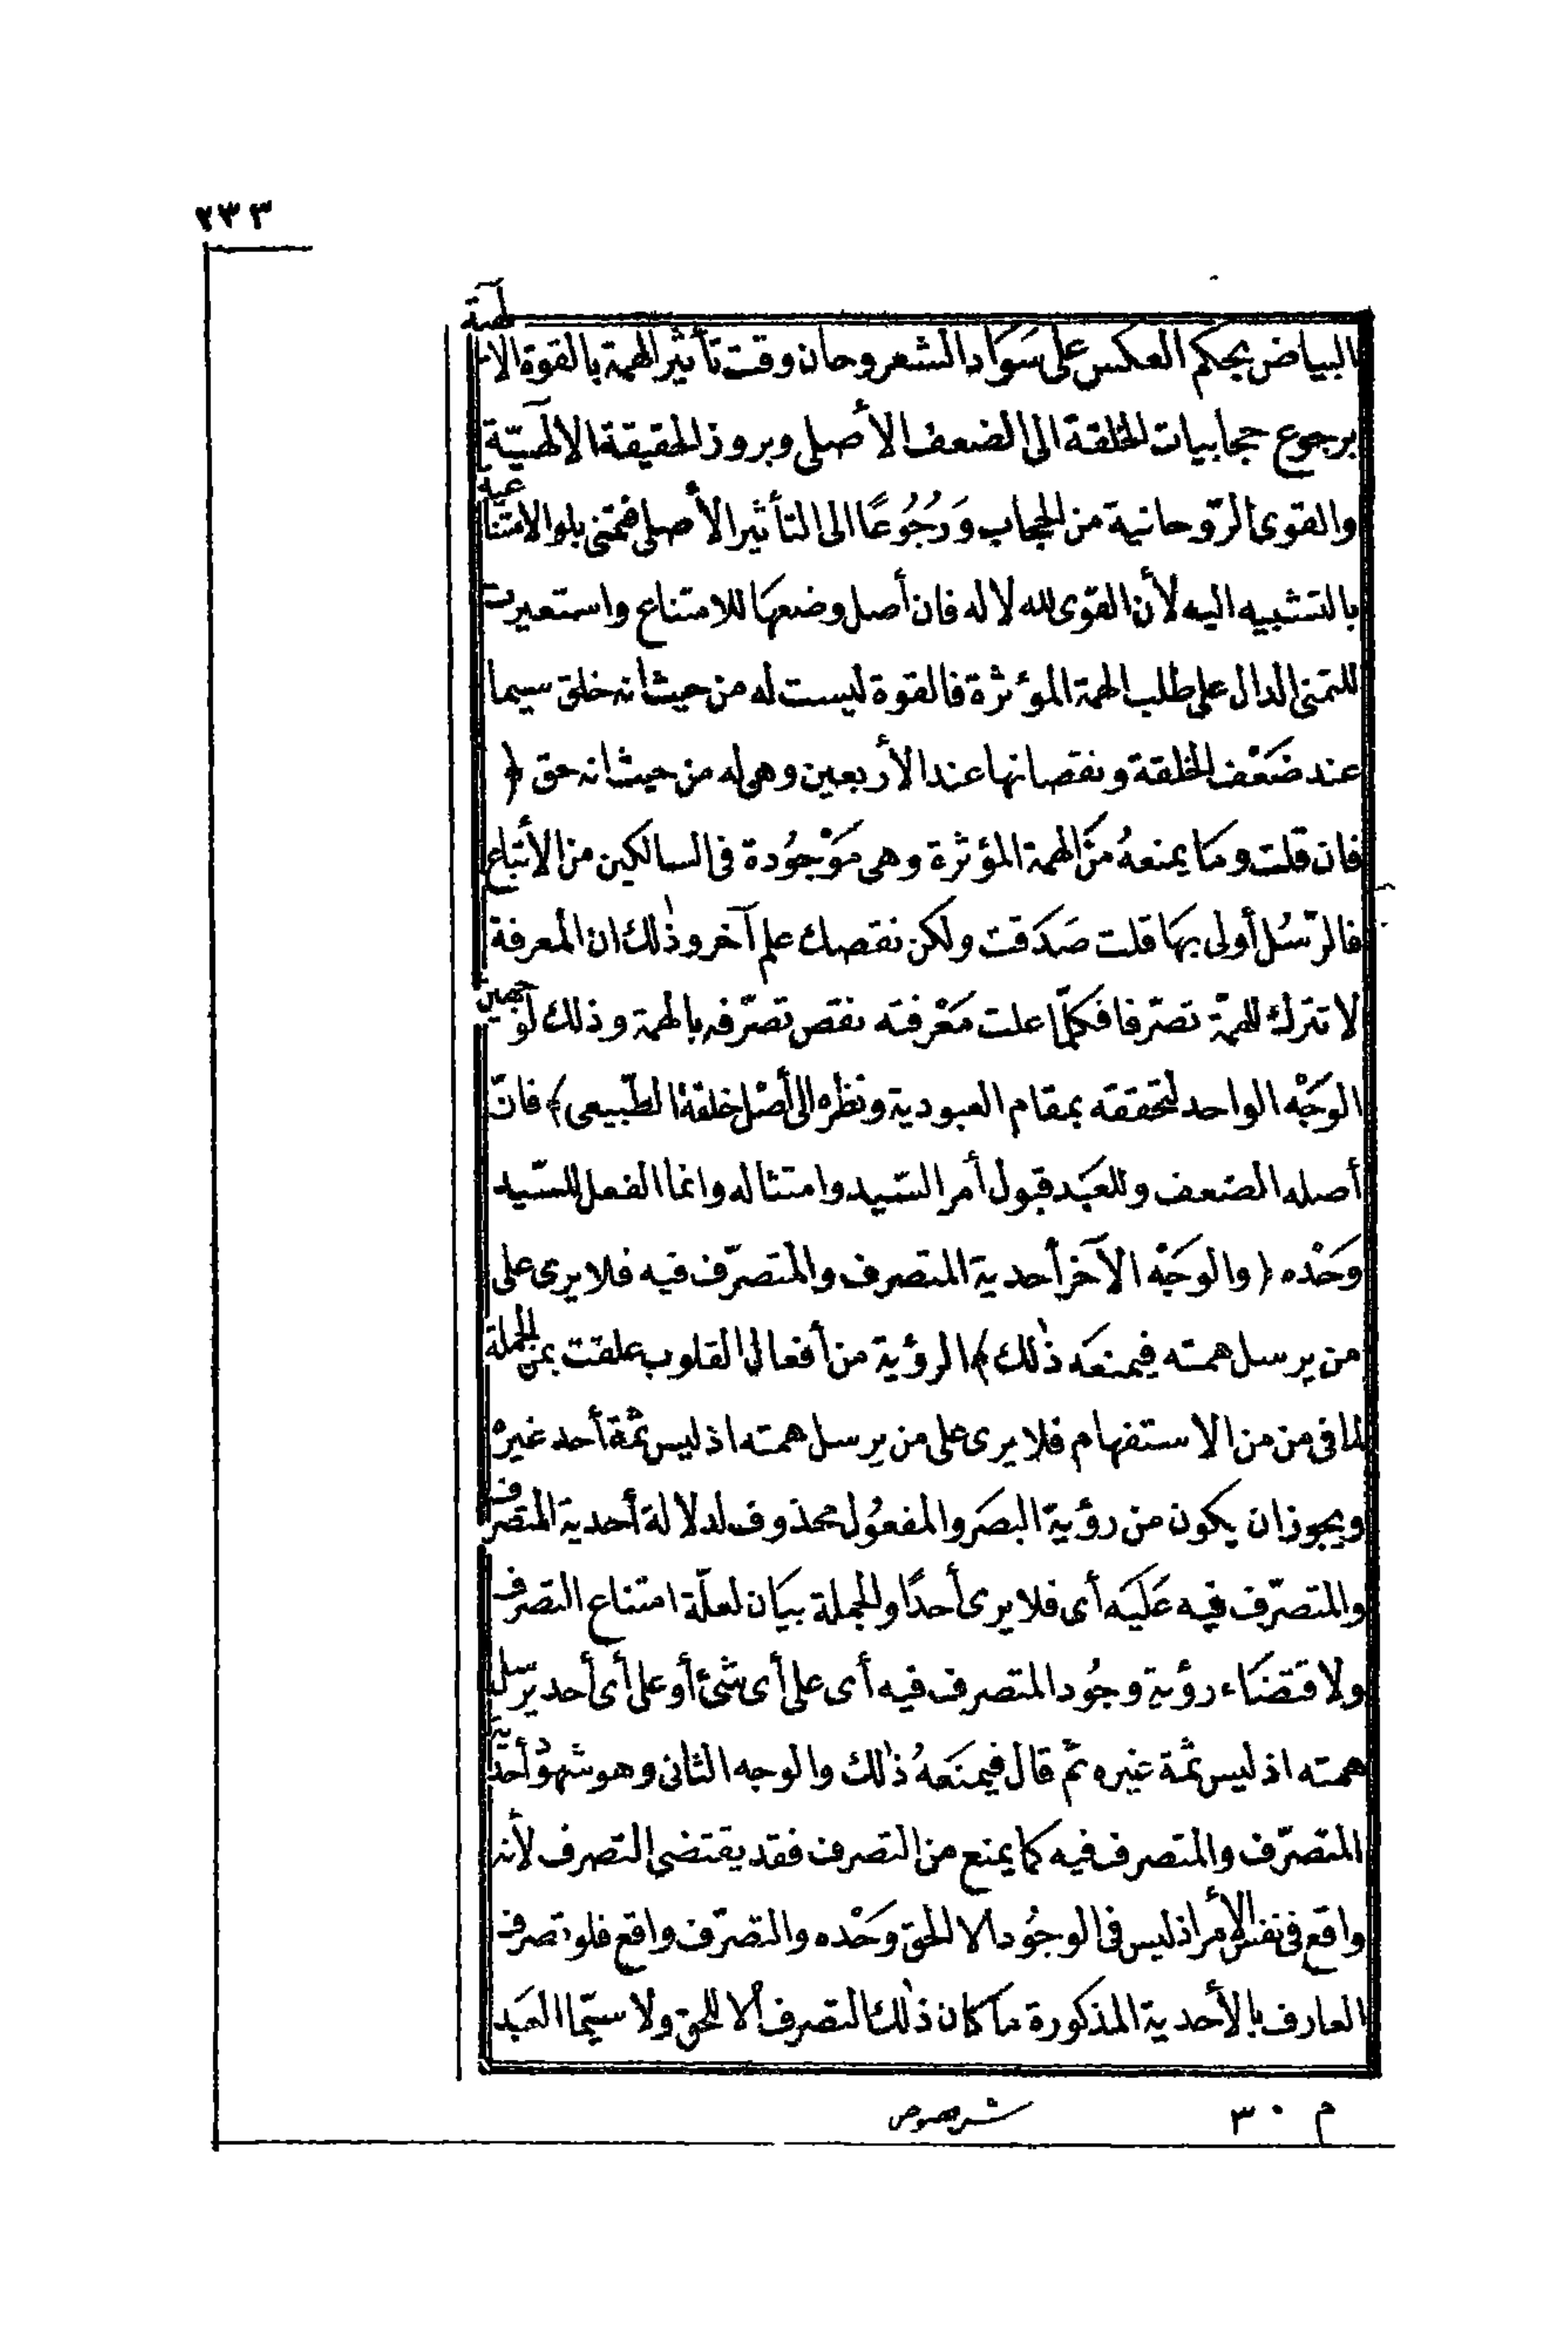 ٢٣٣
بالبياض بحكم العكس على سَوَاد الشعر وحان وقت تأثير الهمة بالقوة الالهٓية
برجوع حجابيات الخلقة الى الضعف الأصلى وبروز الحقيقة الالهٓيّة
والقوى الرّوحانية من الحجاب وَرُجُوعًا الى التأثير الأصلى فتمنى بلو الامتناعية
بالتشبيه اليه لأن القوى لله لا له فان أصل وضعهَا للامتناع واستعيرت
للتمنى الدال على طلب الهمة المؤثرة فالقوة ليست له من حيث انه خلق سيما
عند ضَعْف الخلقة ونقصانها عند الأربعين وهى له من حيث انه حق ﴿
فان قلت ومَا يمنعهُ منَ الهمة المؤثرة وهى مَوْجُودة فى السالكين من الأتباع
فالرّسُل أولى بهَا قلت صَدَقت ولكن نقصك علم آخر وذٰلك ان المعرفة
لا تترك للهمّة تصرّفا فكلّما علت مَعْرفته نقص تصرّفه بالهمة وذلك لوجهين
الوَجْه الواحد لتحققه بمقام العبودية ونظره الى أصْل خلقهْ الطّبيعى﴾ فانّ
أصله الضعف وللعَبْد قبول أمر السّيد وامتثاله وانما الفعل للسّيد
وَحْده ﴿والوَجْه الآخر أحدية المتصرف والمتصرّف فيه فلا يرى على
من يرسل همته فيمنعَه ذٰلك﴾ الرؤية من أفعال القلوب علقت بمن الجملة
لما فى من من الاستفهام فلا يرى على من يرسل همته اذ ليس ثمّة أحد غيره
ويجوز ان يكون من رؤية البصَر والمفعُول محذوف لدلالة أحدية المتصرف
والمتصرّف فيه عَليَه أى فلا يرى أحدًا والجملة بيَان لعلّة امتناع التصرف
ولاقتضَاء رؤية وجُود المتصرف فيه أى على أى شئ أو على أى أحد يرسل
همته اذ ليس ثمّة غيره ثمّ قال فيمنَعهُ ذٰلك والوجه الثانى وهو شهوْد أحدية
المتصرّف والمتصرف فيه كما يمنع من التصرف فقد يقتضى التصرف لأنه
واقع فى نفس الأمر اذ ليس فى الوجُود الا الحق وَحْده والتصرّف واقع فلو تصرف
العارف بالأحدية المذكورة مَا كان ذٰلك التصرف الا للحق ولا سيّما العَبد
م ٣٠ شرح فصوص